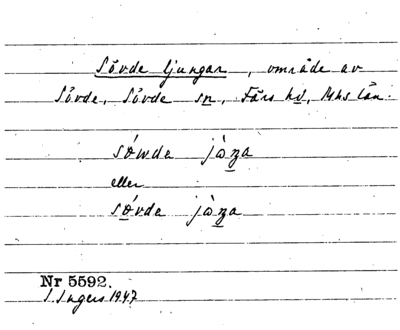 Sövde ljungar, område av
Sövde, Sövde sn, Färs hd, Mhs län.
sówda jàŋa
eller
sóvda jàŋa
Nr 5592.
I. Ingers 1947